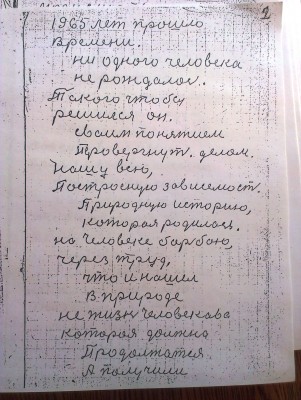 2
1965 лет прошло
времени.
ни одного человека
не рождалос.
Такого чтобы
решился он.
своим понятием
Провергнут. делом.
Нашу всю,
Построеную зависемост.
Природную историю,
которая родилас.
на человеке борбою,
через труд,
что и нашел
в природе
не жизн человекова
которая должна
Продолжатся
А получили